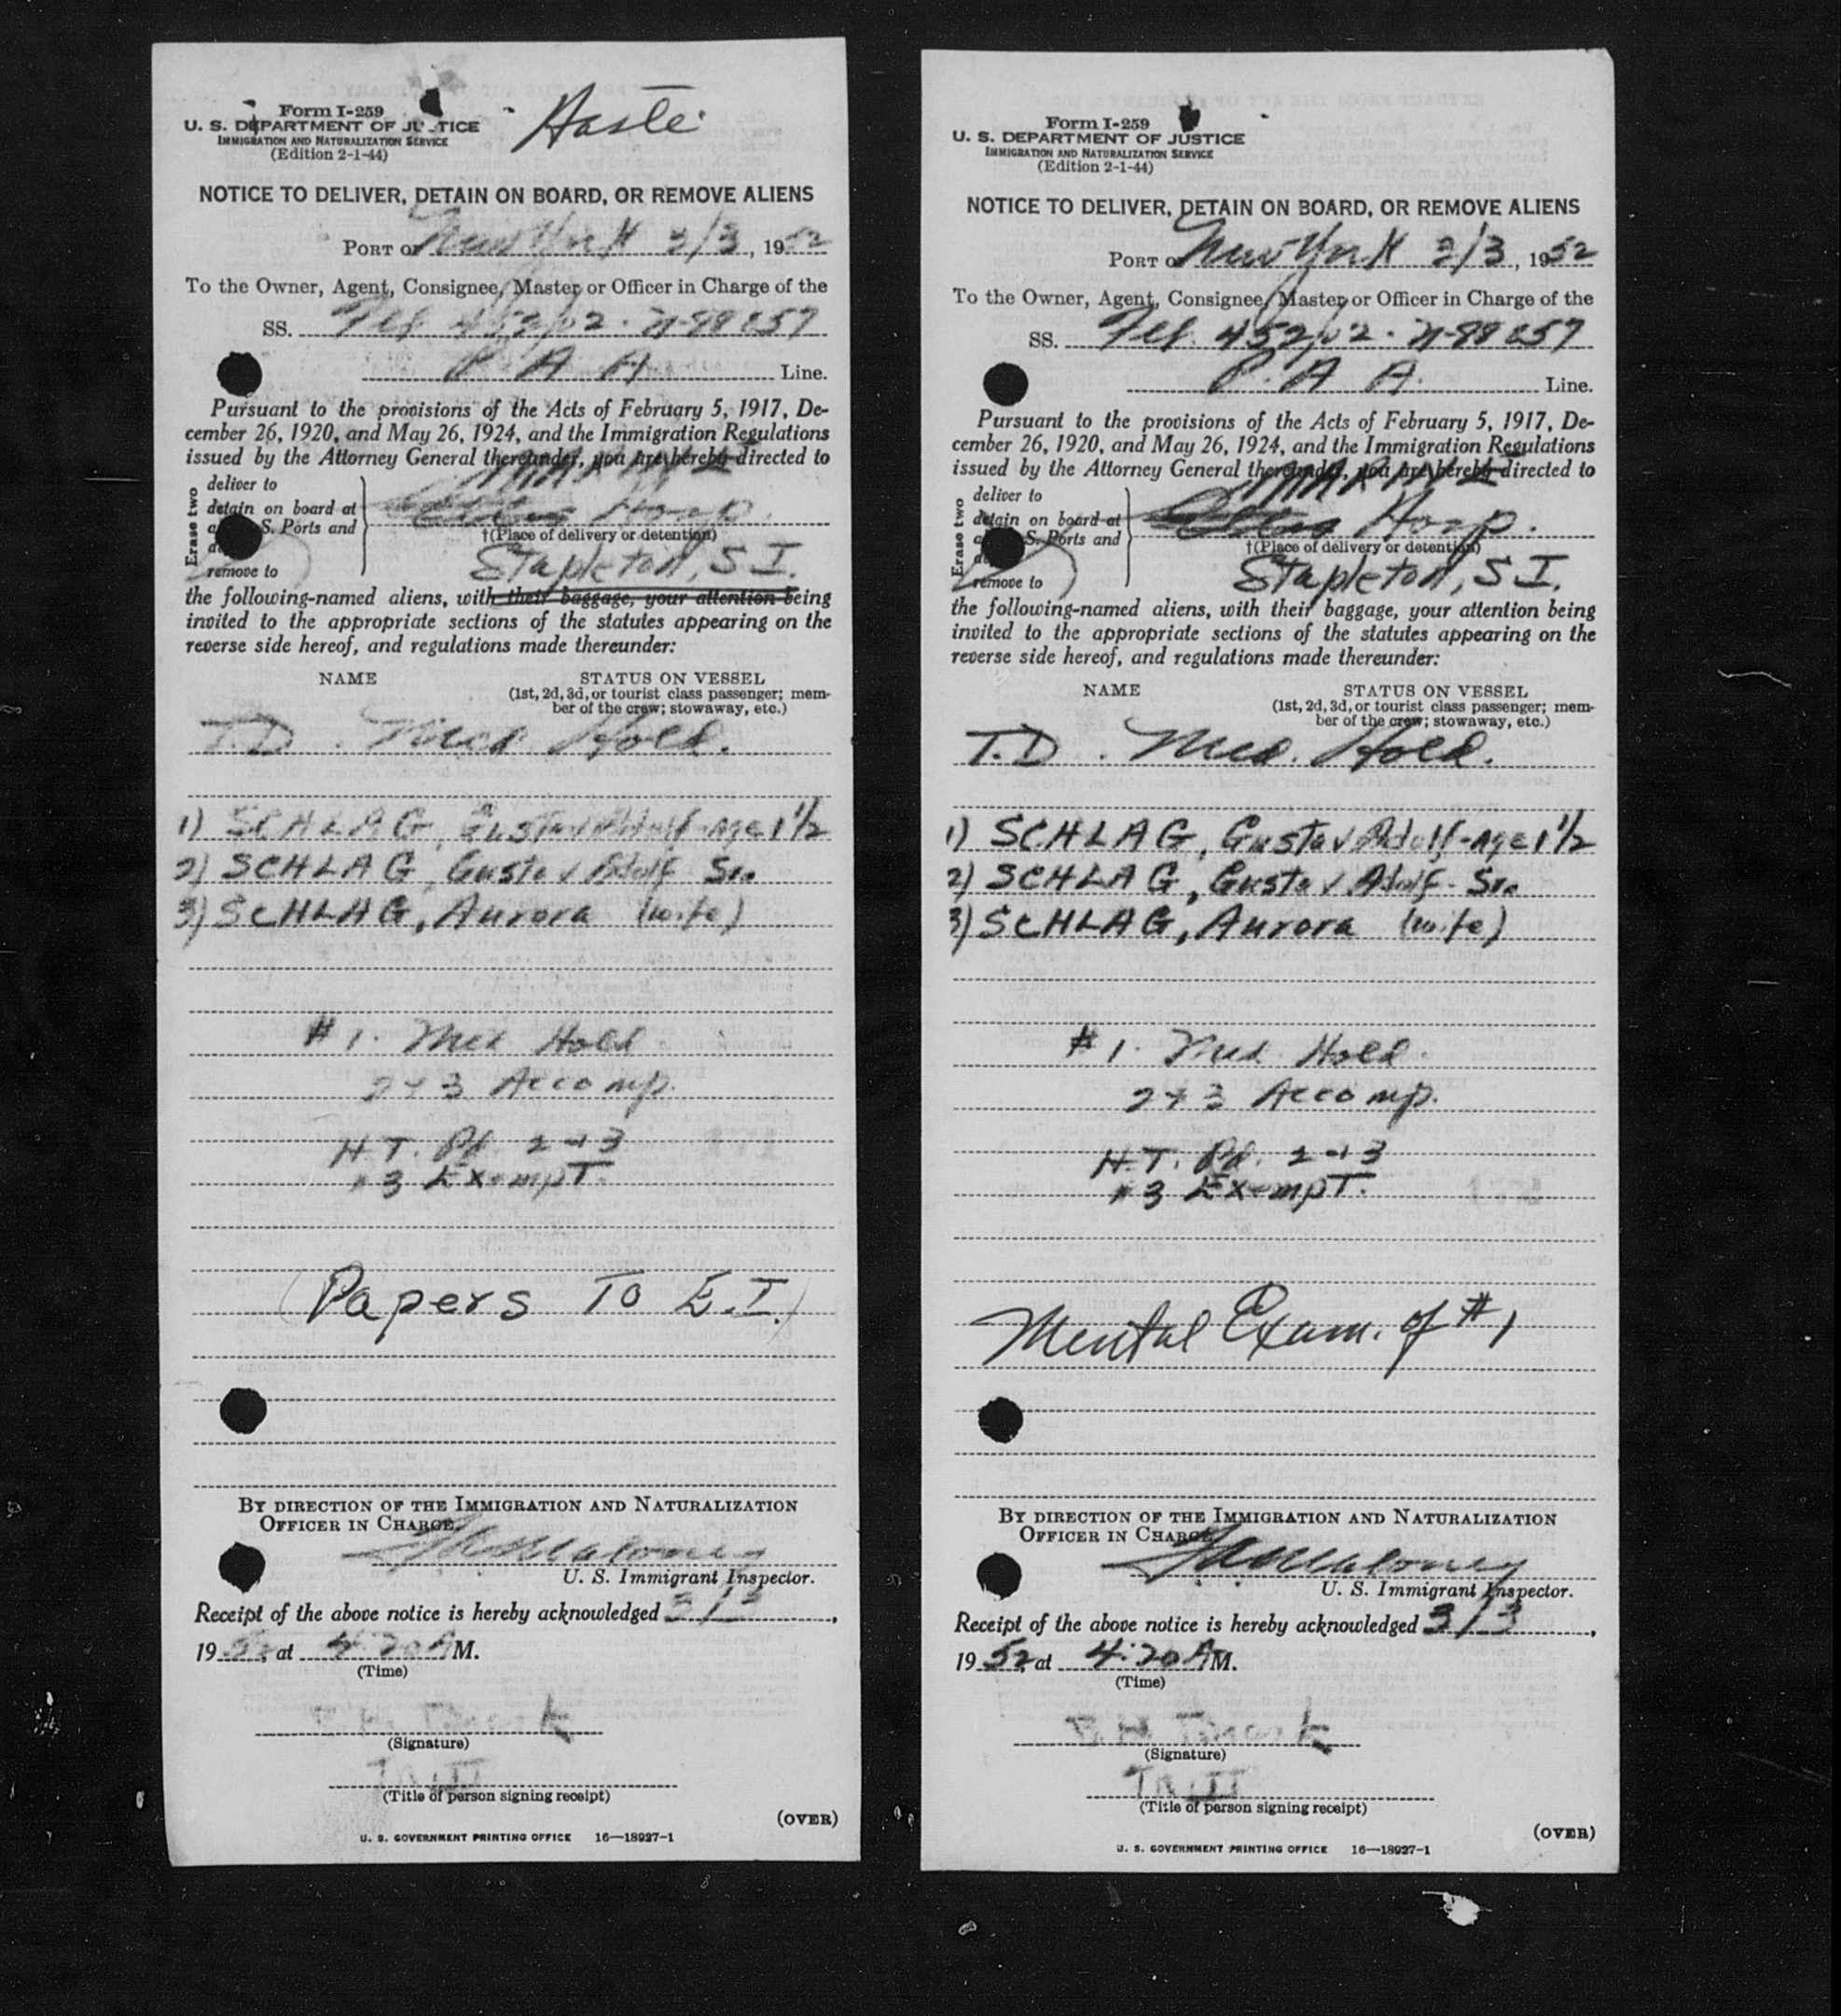 Form I-259
U. S. DEPARTMENT OF JUSTICE
IMMIGRATION AND NATURALIZATION SERVICE
(Edition 2-1-44)
Haste
NOTICE TO DELIVER, DETAIN ON BOARD, OR REMOVE ALIENS
PORT OF New York 3/3, 1952
To the Owner, Agent, Consignee, Master or Officer in Charge of the
SS. 452/02 · N-88857
P. A A Line.
Pursuant to the provisions of the Acts of February 5, 1917, De-
cember 26, 1920, and May 26, 1924, and the Immigration Regulations
issued by the Attorney General thereunder, you are hereby directed to
Erase two
deliver to
detain on board at
S. Ports and
remove to
MARINE
Hosp.
†(Place of delivery or detention)
Stapleton, S I.
the following-named aliens, with their baggage, your attention being
invited to the appropriate sections of the statutes appearing on the
reverse side hereof, and regulations made thereunder:
NAME STATUS ON VESSEL
(1st, 2d, 3d, or tourist class passenger; mem-
ber of the crew; stowaway, etc.)
T.D. Med. Hold.
1) SCHLAG, Gustav Adolf - age 1 1/2
2) SCHLAG, Gustav Adolf Sr.
3) SCHLAG, Aurora (wife)
#1. Med Hold
2+3 Accomp.
H.T. Pd. 2+3
#3 Exempt.
(Papers To E.I.)
BY DIRECTION OF THE IMMIGRATION AND NATURALIZATION
OFFICER IN CHARGE.
Maloney
U. S. Immigrant Inspector.
Receipt of the above notice is hereby acknowledged 3/3,
1952, at 4:20 AM.
(Time)
(Signature)
(Title of person signing receipt)
(OVER)
U. S. GOVERNMENT PRINTING OFFICE 16—18927-1
Form I-259
U. S. DEPARTMENT OF JUSTICE
IMMIGRATION AND NATURALIZATION SERVICE
(Edition 2-1-44)
NOTICE TO DELIVER, DETAIN ON BOARD, OR REMOVE ALIENS
PORT OF New York 3/3, 1952
To the Owner, Agent, Consignee, Master or Officer in Charge of the
SS. 452/02 · N-88857
P. A A. Line.
Pursuant to the provisions of the Acts of February 5, 1917, De-
cember 26, 1920, and May 26, 1924, and the Immigration Regulations
issued by the Attorney General thereunder, you are hereby directed to
Erase two
deliver to
detain on board at
S. Ports and
remove to
MARINE
Hosp.
†(Place of delivery or detention)
Stapleton, S I.
the following-named aliens, with their baggage, your attention being
invited to the appropriate sections of the statutes appearing on the
reverse side hereof, and regulations made thereunder:
NAME STATUS ON VESSEL
(1st, 2d, 3d, or tourist class passenger; mem-
ber of the crew; stowaway, etc.)
T.D. Med. Hold.
1) SCHLAG, Gustav Adolf - age 1 1/2
2) SCHLAG, Gustav Adolf - Sr.
3) SCHLAG, Aurora (wife)
#1. Med. Hold.
2+3 Accomp.
H.T. Pd. 2+3
#3 Exempt.
Mental Exam. of #1
BY DIRECTION OF THE IMMIGRATION AND NATURALIZATION
OFFICER IN CHARGE.
Maloney
U. S. Immigrant Inspector.
Receipt of the above notice is hereby acknowledged 3/3,
1952, at 4:20 AM.
(Time)
(Signature)
(Title of person signing receipt)
(OVER)
U. S. GOVERNMENT PRINTING OFFICE 16—18927-1